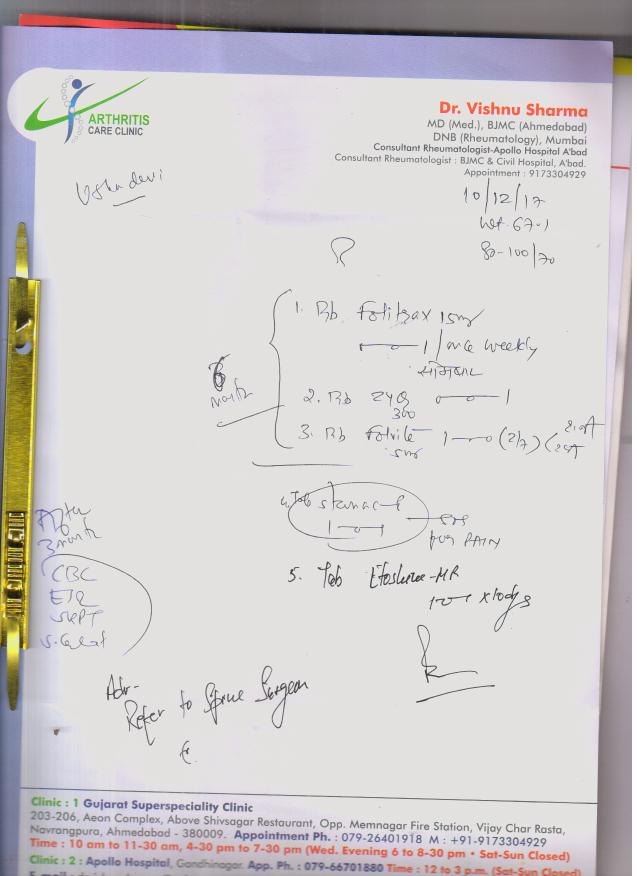 ARTHRITIS
CARE CLINIC
Dr. Vishnu Sharma
MD (Med.), BJMC (Ahmedabad)
DNB (Rheumatology), Mumbai
Consultant Rheumatologist-Apollo Hospital A'bad
Consultant Rheumatologist : BJMC & Civil Hospital, A'bad.
Appointment : 9173304929
Usha devi
10/12/17
wt. 67.1
100/70
1. Folitrax 15mg
1/once weekly
सोमवार
2. ZYQ 1
300
3. Folvite 1 (2/7)
5mg
6
month
4. Tab
SOS
for PAIN
5. Tab Etoshine-MR
x 10 days
After
3 month
CBC
ESR
SGPT
S. Creat
Adv-
Refer to Spine Surgeon
Clinic : 1 Gujarat Superspeciality Clinic
203-206, Aeon Complex, Above Shivsagar Restaurant, Opp. Memnagar Fire Station, Vijay Char Rasta,
Navrangpura, Ahmedabad - 380009. Appointment Ph. : 079-26401918 M : +91-9173304929
Time : 10 am to 11-30 am, 4-30 pm to 7-30 pm (Wed. Evening 6 to 8-30 pm • Sat-Sun Closed)
Clinic : 2 : Apollo Hospital, Gandhinagar. App. Ph. : 079-66701880 Time : 12 to 3 p.m. (Sat-Sun Closed)